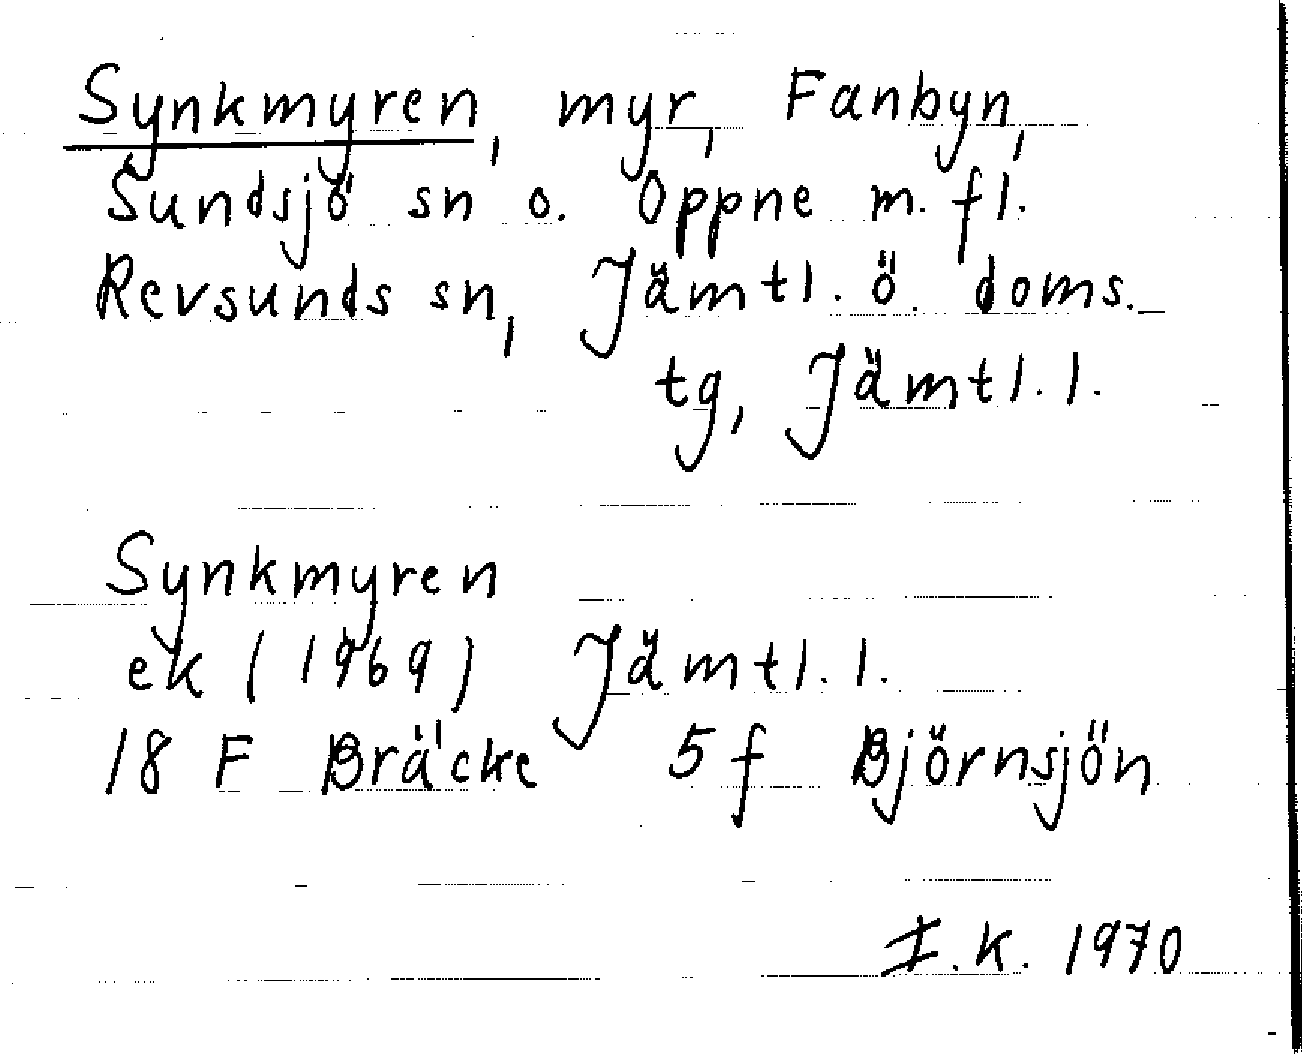 Synkmyren, myr, Fanbyn,
Sundsjö sn o. Oppne m. fl.
Revsunds sn, Jämtl. ö. doms.
tg, Jämtl. l.
Synkmyren
ek (1969) Jämtl. l.
18 F Bräcke 5f Björnsjön
I.K. 1970